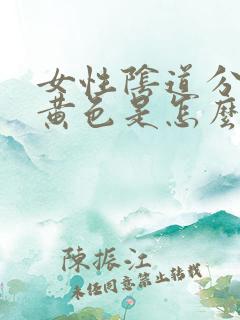 女性陰道分
黃色是怎麼
陳振江
未任同意禁止轉載